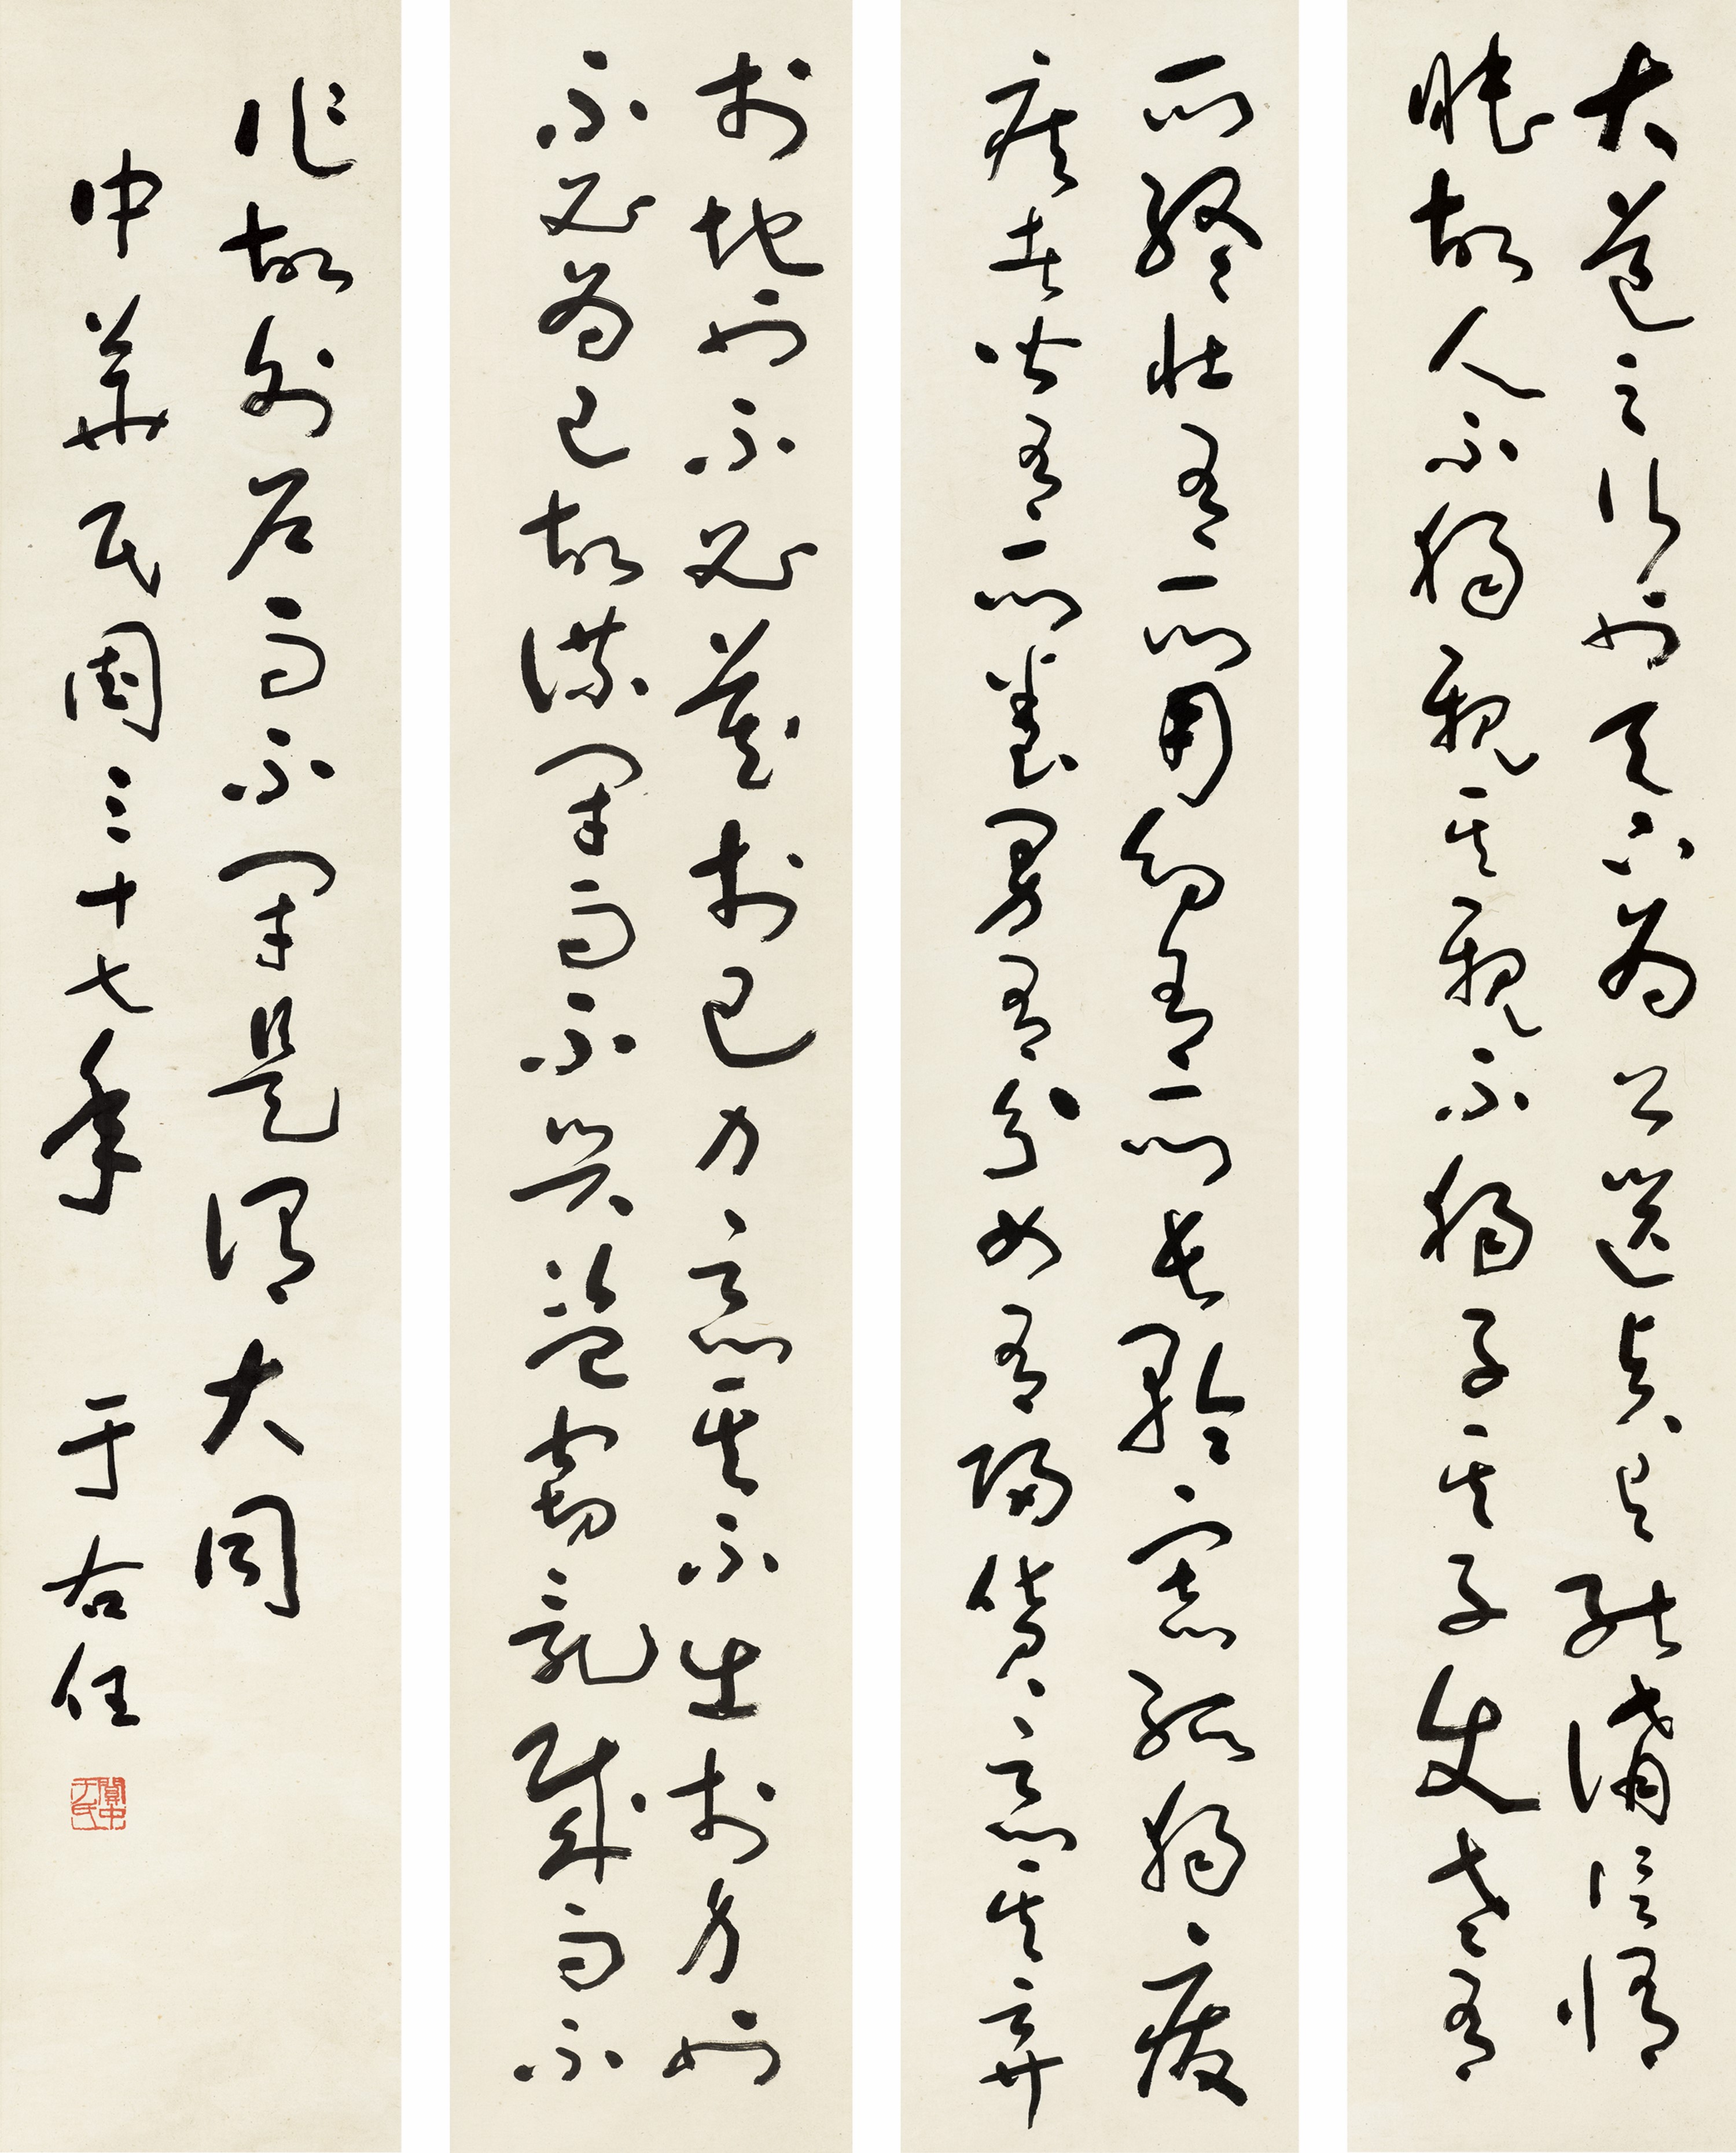 大道之行也天下為公選賢與能講信修
睦故人不獨親其親不獨子其子使老有
所終壯有所用幼有所長矜寡孤獨廢
疾者皆有所養男有分女有歸貨惡其棄
於地也不必藏於己力惡其不出於身也
不必為己故謀閉而不興盜竊亂賊而不
作故外戶而不閉是謂大同
中華民國三十七年 于右任
關中于氏